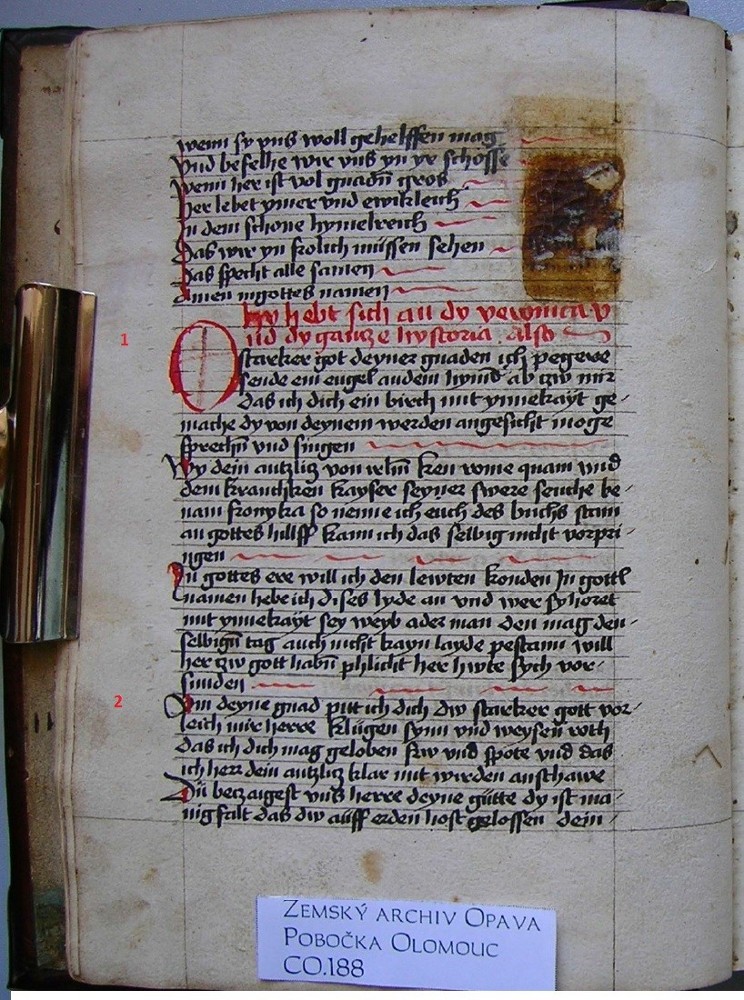 wenn sy vns woll gehelffen mag
vnd befelhe wir vns yn yr schosse
wenn her ist vol gnadn̄ gros
her lebet ymer vnd ewikleich
In dem schone hymelreich
das wir yn frolich müssen sehen
das specht alle samen
amen in gottes namen
hy hebt sich an dy veronica v
nd dy gancze hystoria also
1
O starker got deyner gnaden ich pegere
sende ein engel an dem hymel ab czw mir
das ich dich ein birch mit ynnekayt ge-
mache dy von deynem werden angesicht moge
sprechn̄ vnd singen
Wy dein antzlicz von ken rome quam vnd
dem kranckten kayser seyner swere seuche be-
nam fronyka so nenne ich euch des buchs stam
an gottes hillff kann ich das selbig nicht vorpri-
ngen
In gottes ere will ich den lewten konden In gottes
namen hebe ich dises lyde an vnd wer sy horet
mit ynnekayt sey weyb ader man den mag den-
selbign̄ tag auch nicht kayn layde pestann will
her czw gott habn̄ phlicht her hwte sych vor-
sunden
2
Vm deyne gnad pitt ich dich dw starker gott vor-
leich mir herre klugen synn vnd weysen roth
das ich dich mag geloben frw vnd spote vnd das
ich herr dein antzlicz klar mit wirden anschawe
Dü beczaigest vns herre deyne gütte dy ist ma-
nigfalt das dw auff erden host gelossen dein-
Zemský archiv Opava
Pobočka Olomouc
CO.188